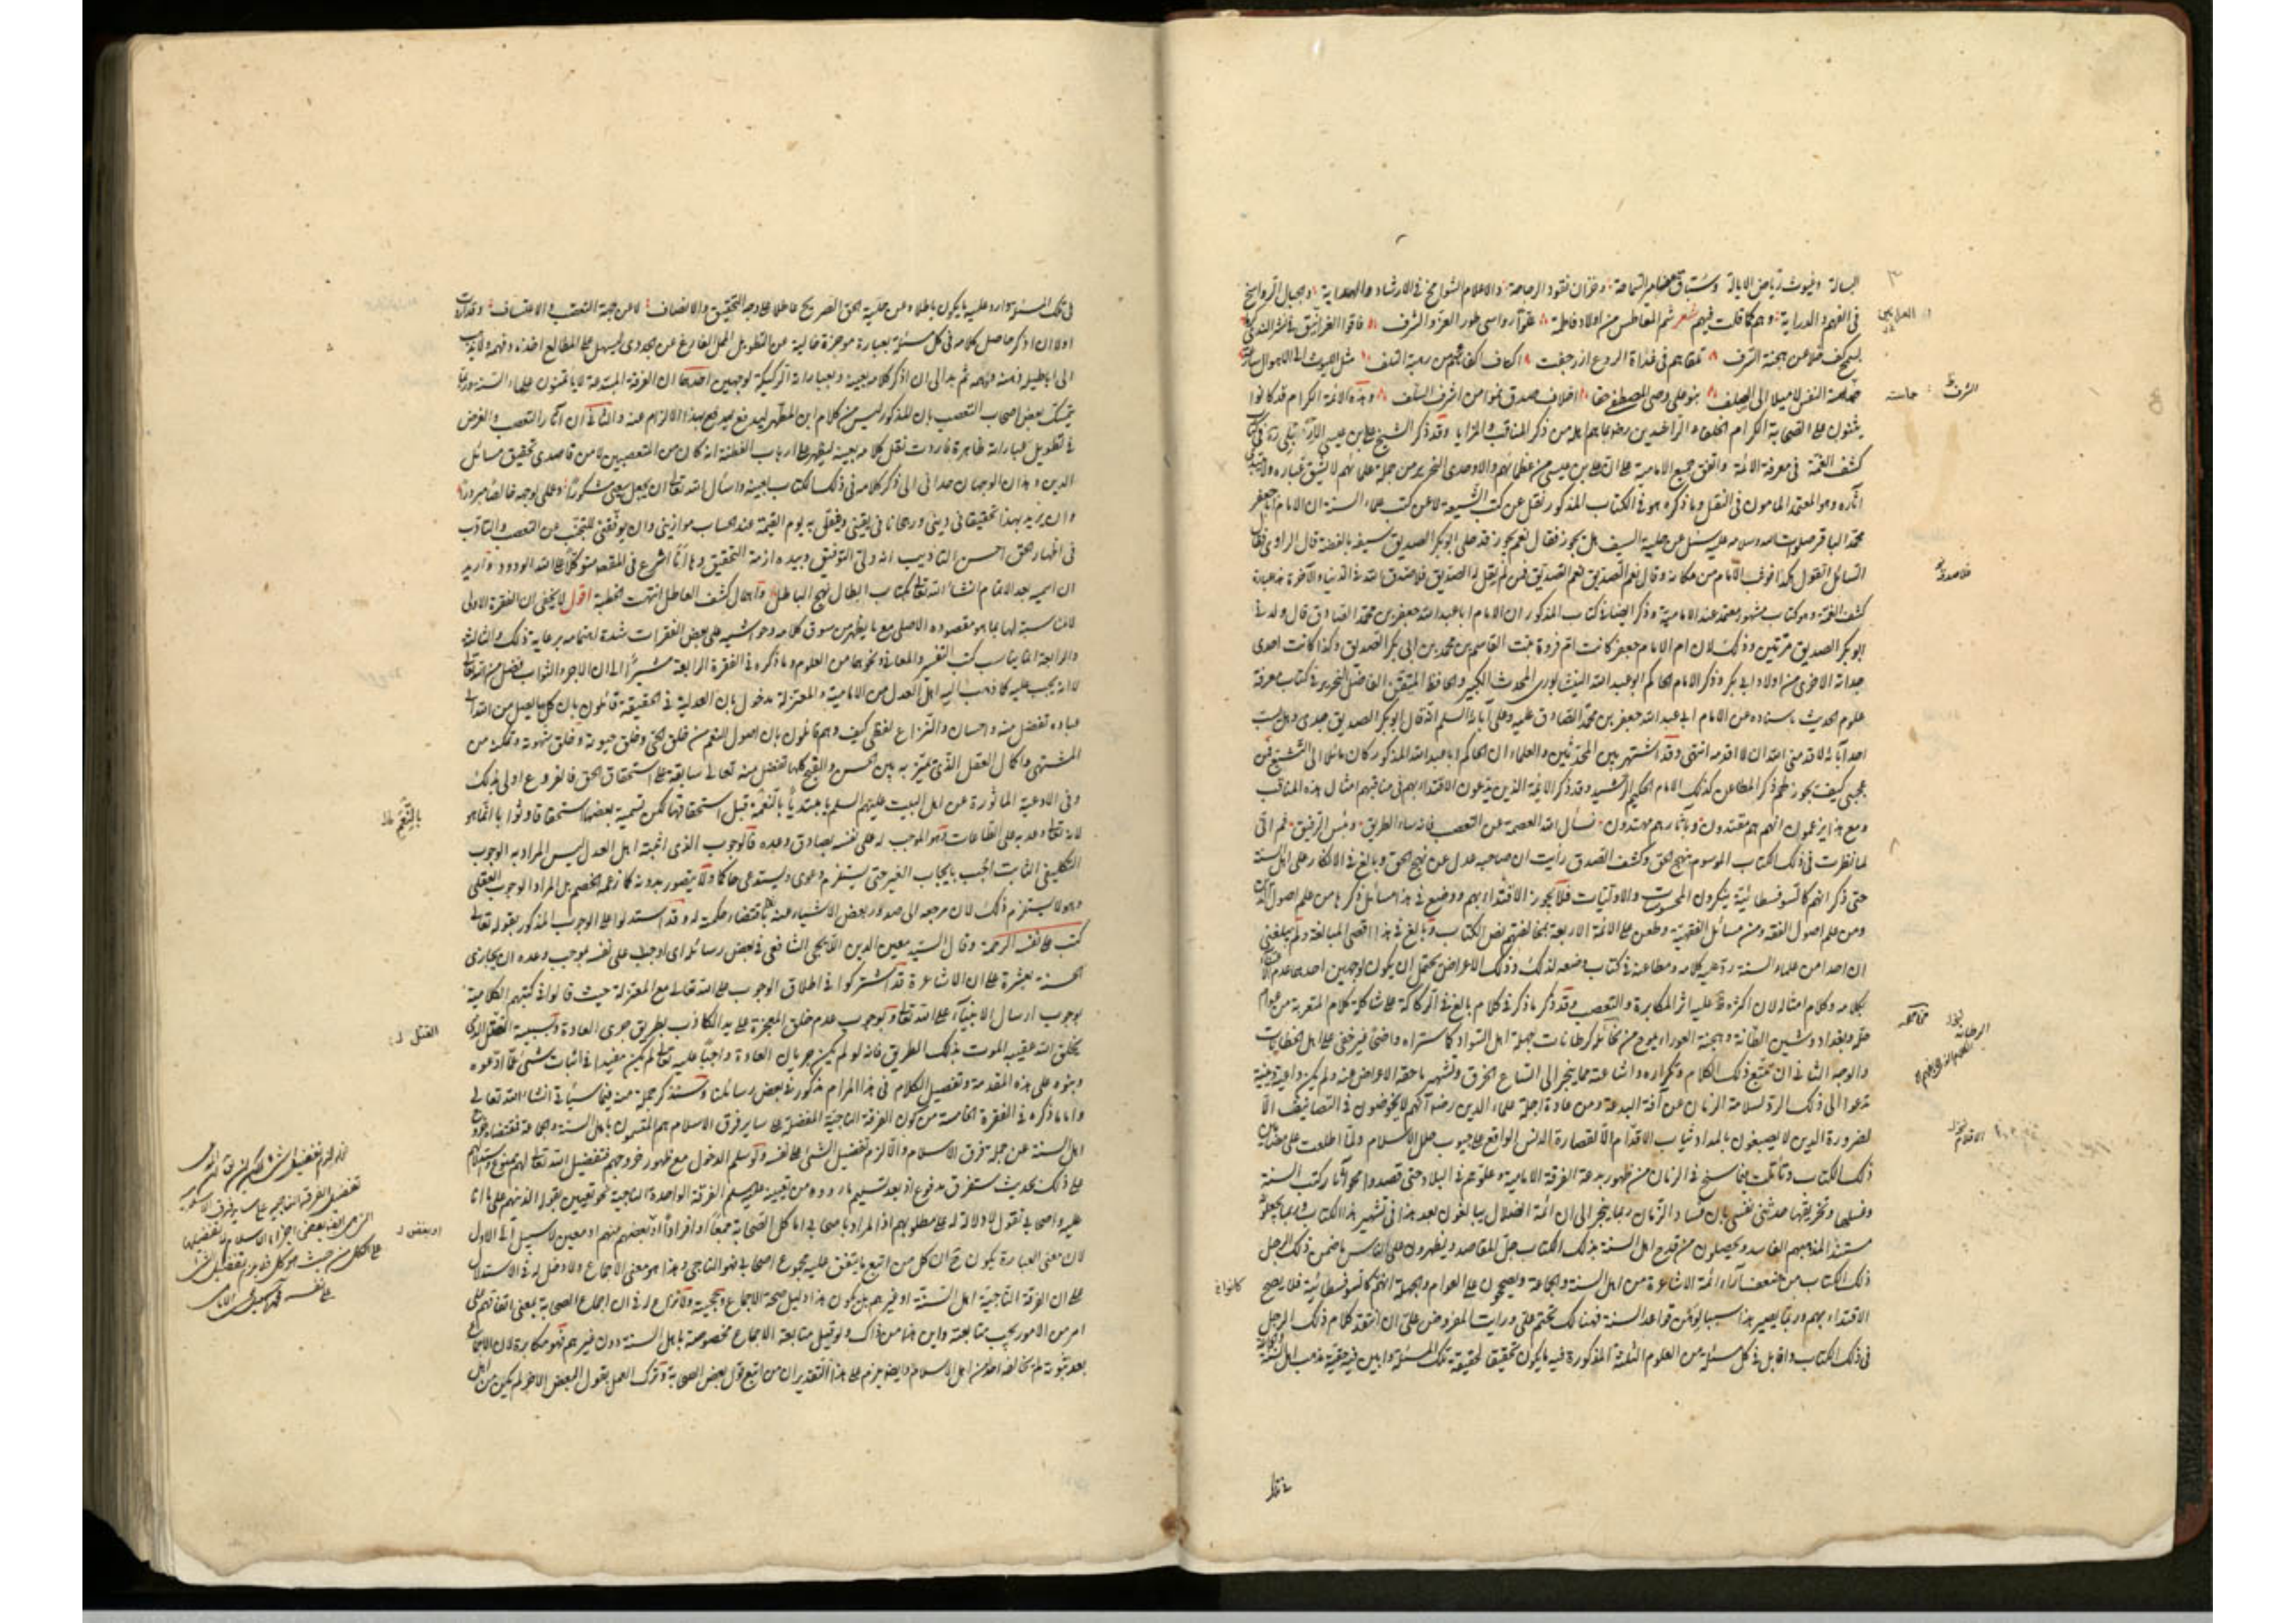 البسالة وغيوث رياض الايالة وسباق مضامير السماحة وخزان نقود الرجاحة والاعلام الشوامخ في الارشاد والهداية وجبال الرواسخ
في الفهم والدراية وهم كما قلت فيهم شعر شم المعاطس من اولاد فاطمة علوا رواسي طور العز والشرف فاقوا العرانين في نشر الندى
بسمح كف خلا عن هجنة السرف تلقاهم في غداة الروع اذ رجفت اكتاف اكفائهم من رهبة التلف مثل الليوث الى الاهوال سارعة
حماسة النفس لا ميلا الى الصلف بنو علي وصي المصطفى حقا اخلاف صدق نموا من اشرف السلف وهذه الائمة الكرام قد كانوا
يثنون على الصحابة الكرام الخلفاء الراشدين رضي الله عنهم بما هم اهله من ذكر المناقب والمزايا وقد ذكر الشيخ علي بن عيسى الاربلي ره في كتاب
كشف الغمة في معرفة الائمة واتفق جميع الامامية على ان علي بن عيسى من عظمائهم والاوحدي النحرير من جملة علمائهم لا يشق غباره ولا يبتدر
آثاره وهو المعتمد المامون في النقل وما ذكره هو في الكتاب المذكور نقل عن كتب الشيعة لا عن كتب علماء السنة ان الامام ابا جعفر
محمد الباقر صلوات الله وسلامه عليه سئل عن حلية السيف هل يجوز فقال نعم يجوز قد حلى ابو بكر الصديق سيفه بالفضة قال الراوي فقال
السائل اتقول هكذا فوثب الامام من مكانه وقال نعم الصديق نعم الصديق فمن لم يقل له الصديق فلا صدق الله في الدنيا والآخرة هذه عبارة
كشف الغمة وهو كتاب مشهور معتمد عند الامامية وذكر ايضا في كتاب المذكور ان الامام ابا عبد الله جعفر بن محمد الصادق قال ولدني
ابو بكر الصديق مرتين وذلك لان ام الامام جعفر كانت ام فروة بنت القاسم بن محمد بن ابي بكر الصديق وكذا كانت احدى
جداته الاخرى من اولاد ابي بكر وذكر الامام الحاكم ابو عبد الله النيشابوري المحدث الكبير والحافظ المتقن الفاضل النحرير في كتاب معرفة
علوم الحديث باسناده عن الامام ابي عبد الله جعفر بن محمد الصادق عليه وعلى آبائه السلام انه قال ابو بكر الصديق جدي وهل يسب
احد آباءه لا قدمني الله ان لا اقدمه انتهى وقد اشتهر بين المحدثين والعلماء ان الحاكم ابا عبد الله المذكور كان مائلا الى التشيع فمن
عجبي كيف يجوز لهم ذكر المطاعن لذلك الامام الحكيم الرشيد وقد ذكر الائمة الذين يدعون الاقتداء بهم في مناقبهم امثال هذه المناقب
ومع هذا يزعمون انهم بهم مقتدون وبآثارهم مهتدون نسأل الله العصمة عن التعصب فانه ساء الطريق وبئس الرفيق ثم اني
لما نظرت في ذلك الكتاب الموسوم بنهج الحق وكشف الصدق رأيت ان صاحبه عدل عن نهج الحق وبالغ في الانكار على اهل السنة
حتى ذكر انهم كالسوفسطائية ينكرون المحسوسات والاوليات فلا يجوز الاقتداء بهم ووضع في هذا مسائل ذكرها من علم اصول الدين
ومن علم اصول الفقه ومن مسائل الفقهية وطعن على الائمة الاربعة بمخالفتهم نص الكتاب وبالغ في هذا اقصى المبالغة ولم يبلغني
ان احدا من علماء السنة رد عليه كلامه ومطاعنه في كتاب وضعه لذلك وذلك الاعراض يحتمل ان يكون لوجهين احدهما عدم الاعتناء
بكلامه وكلام امثاله لان اكثره ظاهر عليه اثر المكابرة والتعصب وقد ذكر ما ذكر في كلام بالغ في الركاكة على شاكلة كلام المتعربة من عوام
حلة وبغداد وشين الطانة وهجنة العوراء يلوح من مخائله كرطانات جهلة اهل السواد كاستراه واضحا غير خفي على اهل الخطابات
والوجه الثاني ان تتبع ذلك الكلام وتكراره واشاعته مما ينجر الى اتساع الخرق وتشهير ما حقه الاعراض عنه ولم يكن داعية دينية
تدعوا الى ذلك الرد لسلامة الزمان عن آفة البدعة ومن عادة اجلة علماء الدين رضوا انهم لا يخوضون في التصانيف الا
لضرورة الدين لا يصبغون بالمداد ثياب الاقدام الا لقصارة الدنس الواقع على جيوب حلل الاسلام ولما اطلعت على مضامين
ذلك الكتاب وتأملت فيما سنح في الزمان من ظهور بدعة الفرقة الامامية وعلوهم في البلاد حتى قصدوا محو آثار كتب السنة
وغسلها وتخريقها حدثتني نفسي بان فساد الزمان ربما ينجر الى ان ائمة الضلال يبالغون بعد هذا في تشهير هذا الكتاب وربما يجعلونه
مستندا لمذهبهم الفاسد ويحصلون من قدح اهل السنة بذلك الكتاب جل المقاصد ويظهرون على الناس ما ضمن ذلك الرجل
ذلك الكتاب من ضعف آراء ائمة الاشاعرة من اهل السنة والجماعة ويصححون على العوام والجهلة انهم كالسوفسطائية فلا يصح
الاقتداء بهم وربما يصير هذا سببا لوهن قواعد السنة فهنالك تحتم علي ورايت المفروض علي ان انتقد كلام ذلك الرجل
في ذلك الكتاب واقابل في كل مسئلة من العلوم الثلثة المذكورة فيه ما يكون تحقيقا لحقيقة تلك المسئلة وابين فيه حقية مذهب اهل السنة
كانوا خ
في تلك المسئلة وارد عليه ما يكون باطلا وعن حلية الحق الصريح عاطلا على وجه التحقيق والانصاف لا عن جهة التعصب والاعتساف وقد اردت
اولا ان اذكر حاصل كلامه في كل مسئلة بعبارة موجزة خالية عن التطويل الممل الفارغ عن الجدوى ليسهل على المطالع اخذه وفهمه ولا يذهب
الى اباطيله ذهنه ووهمه ثم بدا لي ان اذكر كلامه بعينه وبعباراته الركيكة لوجهين احدهما ان الفرقة المبتدعة لا يأتمنون علماء السنة وربما
يتمسك بعض اصحاب التعصب بان المذكور ليس من كلام ابن المطهر ليدفع بهذا الالزام عنه والثاني ان آثار التعصب والغرض
في تطويل عباراته ظاهرة فاردت نقل كلامه بعينه ليظهر على ارباب الفطنة انه كان من المتعصبين لا من قاصدي تحقيق مسائل
الدين وهذان الوجهان حداني الى ذكر كلامه في ذلك الكتاب بعينه واسأل الله تعالى ان يجعل سعيي مشكورا وعملي لوجهه خالصا مبرورا
وان يزيد بهذا تحقيقا في ديني ورجحانا في يقيني ويثقل به يوم القيمة عند الحساب موازيني وان يوفقني للتجنب عن التعصب والتأدب
في اظهار الحق احسن التأديب انه ولي التوفيق وبيده ازمة التحقيق وها انا اشرع في المقصد متوكلا على الله الودود واريد
ان اسميه بعد الاتمام انشاء الله تعالى بكتاب ابطال نهج الباطل واهمال كشف العاطل انتهت الخطبة اقول لا يخفى ان الفقرة الاولى
لا مناسبة لها بما هو مقصوده الاصلي مع ما يظهر من سوق كلامه وحواشيه على بعض الفقرات شدة اهتمامه برعاية ذلك والثالثة
والرابعة انما يناسب كتب التفسير والمعاني ونحوهما من العلوم وما ذكره في الفقرة الرابعة مشيرا الى ان الاجر والثواب فضل من الله تعالى
لا انه يجب عليه كما ذهب اليه اهل العدل من الامامية والمعتزلة مدخول بان العدلية في الحقيقة قائلون بان كل ما يصل من الله الى
عباده تفضل منه واحسان والنزاع لفظي كيف وهم قائلون بان اصول النعم من خلق الحي وخلق حيوته وخلق شهوته وتمكنه من
المشتهى واكمال العقل الذي يميز به بين الحسن والقبيح كلها تفضل منه تعالى سابقة على استحقاق الحق فالفروع اولى بذلك
وفي الادعية الماثورة عن اهل البيت عليهم السلام يا مبتديا بالنعمة قبل استحقاقها لكن تسمية بعضها استحقاقا وثوابا انما هو
لانه تعالى وعد به على الطاعات فهو الموجب له على نفسه بصادق وعده فالوجوب الذي اثبته اهل العدل ليس المراد به الوجوب
التكليفي الثابت بايجاب الغير حتى يستلزم دعوى ويستدعي حاكما ولا يتصور بدونه كما زعمه الخصم بل المراد الوجوب العقلي
وهو لا يستلزم ذلك لان مرجعه الى صدور بعض الاشياء عنه باقتضاء حكمته له وقد استدلوا على الوجوب المذكور بقوله تعالى
كتب على نفسه الرحمة وقال السيد معين الدين الايجي الشافعي في بعض رسائله اي اوجب على نفسه بموجب وعده ان يجازى
الحسنة بعشرة على ان الاشاعرة قد اشتركوا في اطلاق الوجوب على الله تعالى مع المعتزلة حيث قالوا في كتبهم الكلامية
بوجوب ارسال الانبياء على الله تعالى وبوجوب عدم خلق المعجزة على يد الكاذب بطريق جرى العادة وسببية القتل الذي
يخلق الله عقيبه الموت بذلك الطريق فانه لو لم يكن جريان العادة واجبا عليه تعالى لم يكن مفيدا في اثبات شيء مما ادعوه
وبنوه على هذه المقدمة وتفصيل الكلام في هذا المرام مذكور في بعض رسائلنا وسنذكر جملة منه فيما سيأتي انشاء الله تعالى
واما ما ذكره في الفقرة الخامسة من كون الفرقة الناجية المفضلة على ساير فرق الاسلام هم المتسمون باهل السنة والجماعة فمقتضاه خروج
اهل السنة عن جملة فرق الاسلام والا لزم تفضيل الشئ على نفسه ولو سلم الدخول مع ظهور خروجهم فتفضيل الله تعالى لهم ممنوع واستدلالهم
على ذلك بحديث ستفترق مدفوع اذ بعد تسليم ما رووه من تعيينه عليه السلام الفرقة الواحدة الناجية نحو تعيين بقوله الذين هم على ما انا
عليه واصحابي نقول لا دلالة له على مطلوبهم اذ المراد باصحابي اما كل الصحابة جمعا او افرادا او بعضهم مبهم او معين لا سبيل الى الاول
لان معنى العبارة يكون ح ان كل من اتبع ما يتفق عليه مجموع اصحابي فهو الناجي وهذا هو معنى الاجماع ولا دخل له في الاستدلال
على ان الفرقة الناجية اهل السنة او غيرهم بل يكون هذا دليل صحة الاجماع وحجيته ولا نزاع له في ان اجماع الصحابة بمعنى اتفاقهم على
امر من الامور يجب متابعته واين هذا من ذاك ولو قيل متابعة الاجماع مخصوصة باهل السنة دون غيرهم فهو مكابرة لان الاجماع
بعد ثبوته لم يخالفه احد من اهل الاسلام وايضا يلزم على هذا التقدير ان من اتبع قول بعض الصحابة وترك العمل بقول البعض الاخر لم يكن من اهل
بالنعم خل
القتل
او بعض